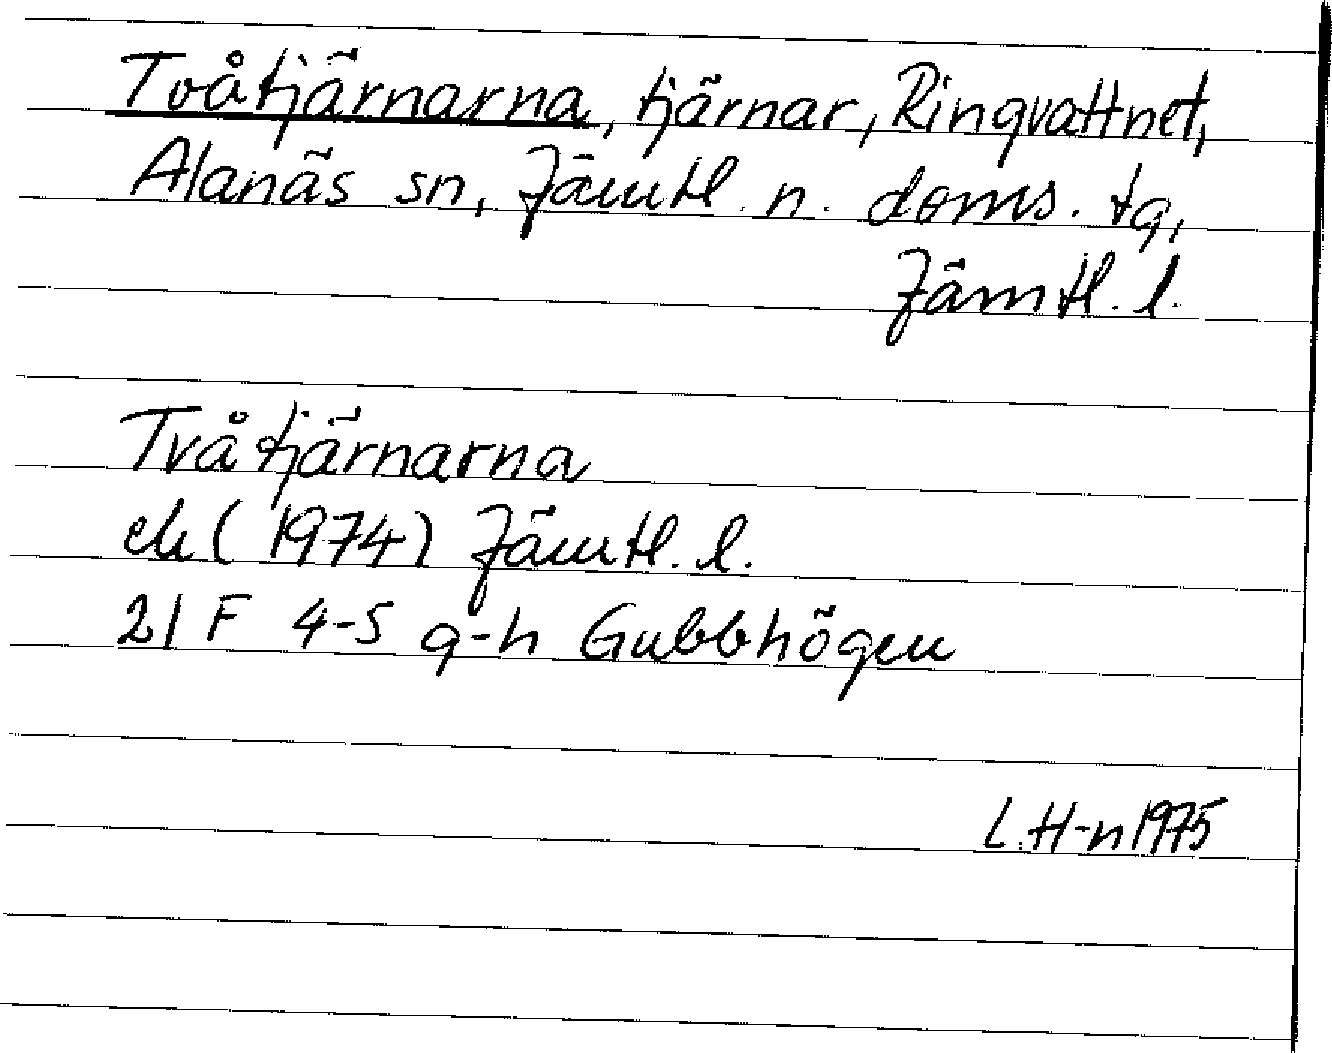 Tvåtjärnarna, tjärnar, Ringvattnet,
Alanäs sn, Jämtl. n. doms. tg,
Jämtl. l.
Tvåtjärnarna
ek (1974) Jämtl. l.
21 F 4-5 g-h Gubbhögen
L.H-n 1975